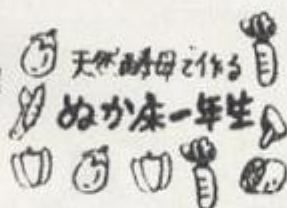 天然酵母で作る
ぬか床一年生